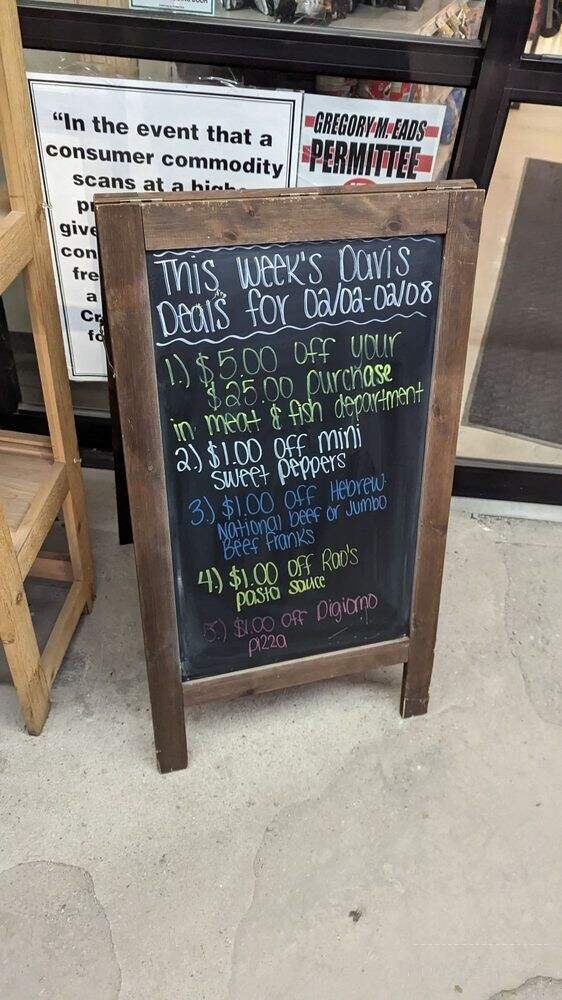 "In the event that a
consumer commodity
scans at a
give
con
fre
a
fo
GREGORY M. EADS
PERMITTEE
This Week's Davis
Deals for 02/02-02/08
1.) $5.00 off your
$25.00 purchase
in meat & fish department
2.) $1.00 off mini
sweet peppers
3.) $1.00 off Hebrew
National beef or Jumbo
Beef Franks
4.) $1.00 off Rao's
pasta sauce
5.) $1.00 off Digiorno
pizza